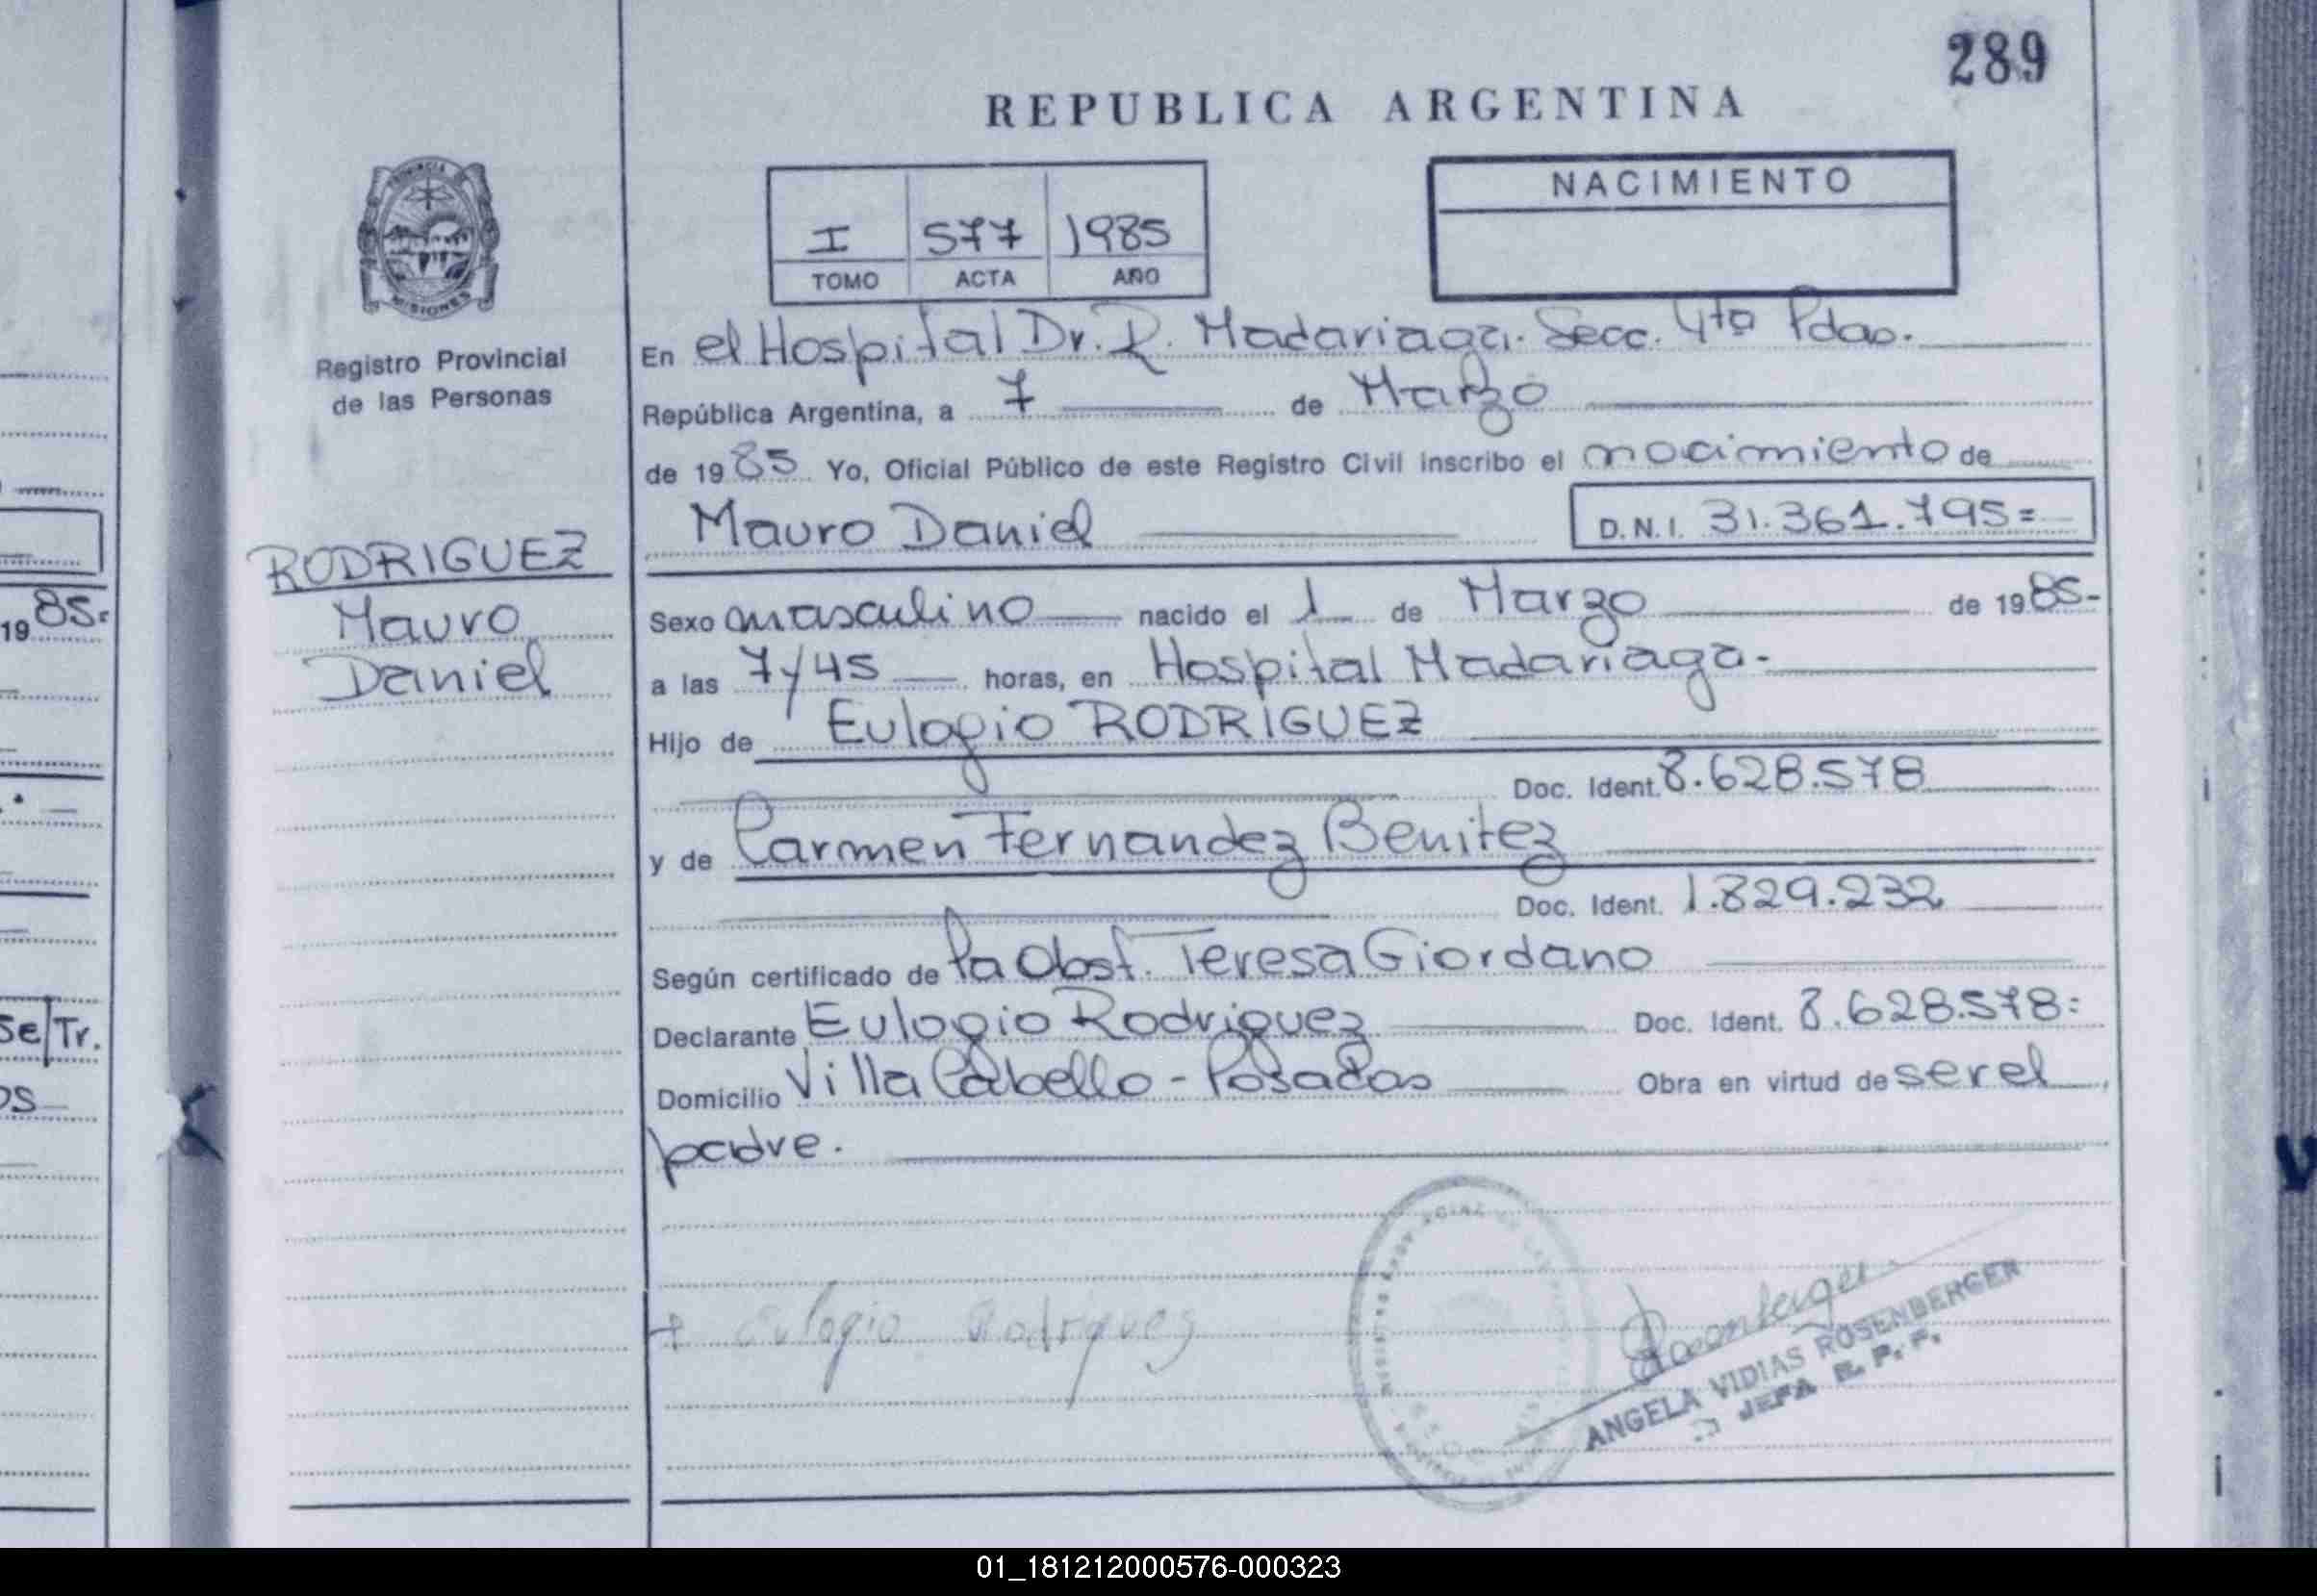 289
REPUBLICA ARGENTINA
PROVINCIA
MISIONES
Registro Provincial
de las Personas
I 577 1985
TOMO ACTA AÑO
NACIMIENTO
En el Hospital Dr. R. Madariaga. Secc. 4ta Pdas.
República Argentina, a 7 de Marzo
de 1985 Yo, Oficial Público de este Registro Civil inscribo el nacimiento de
Mauro Daniel D.N.I. 31.361.795=
RODRIGUEZ
Mauro
Daniel
Sexo masculino nacido el 1 de Marzo de 1985-
a las 7y45 horas, en Hospital Madariaga-
Hijo de Eulogio RODRIGUEZ
Doc. Ident. 8.628.578
y de Carmen Fernandez Benitez
Doc. Ident. 1.829.232
Según certificado de la Obst. Teresa Giordano
Declarante Eulogio Rodriguez Doc. Ident. 8.628.578=
Domicilio Villa Cabello - Posadas Obra en virtud de ser el
padre.
+ Eulogio Rodrguez
Rosenberger
ANGELA VIDIAS ROSENBERGER
JEFA R. P. P.
1985=
Se/Tr.
os
01_181212000576-000323